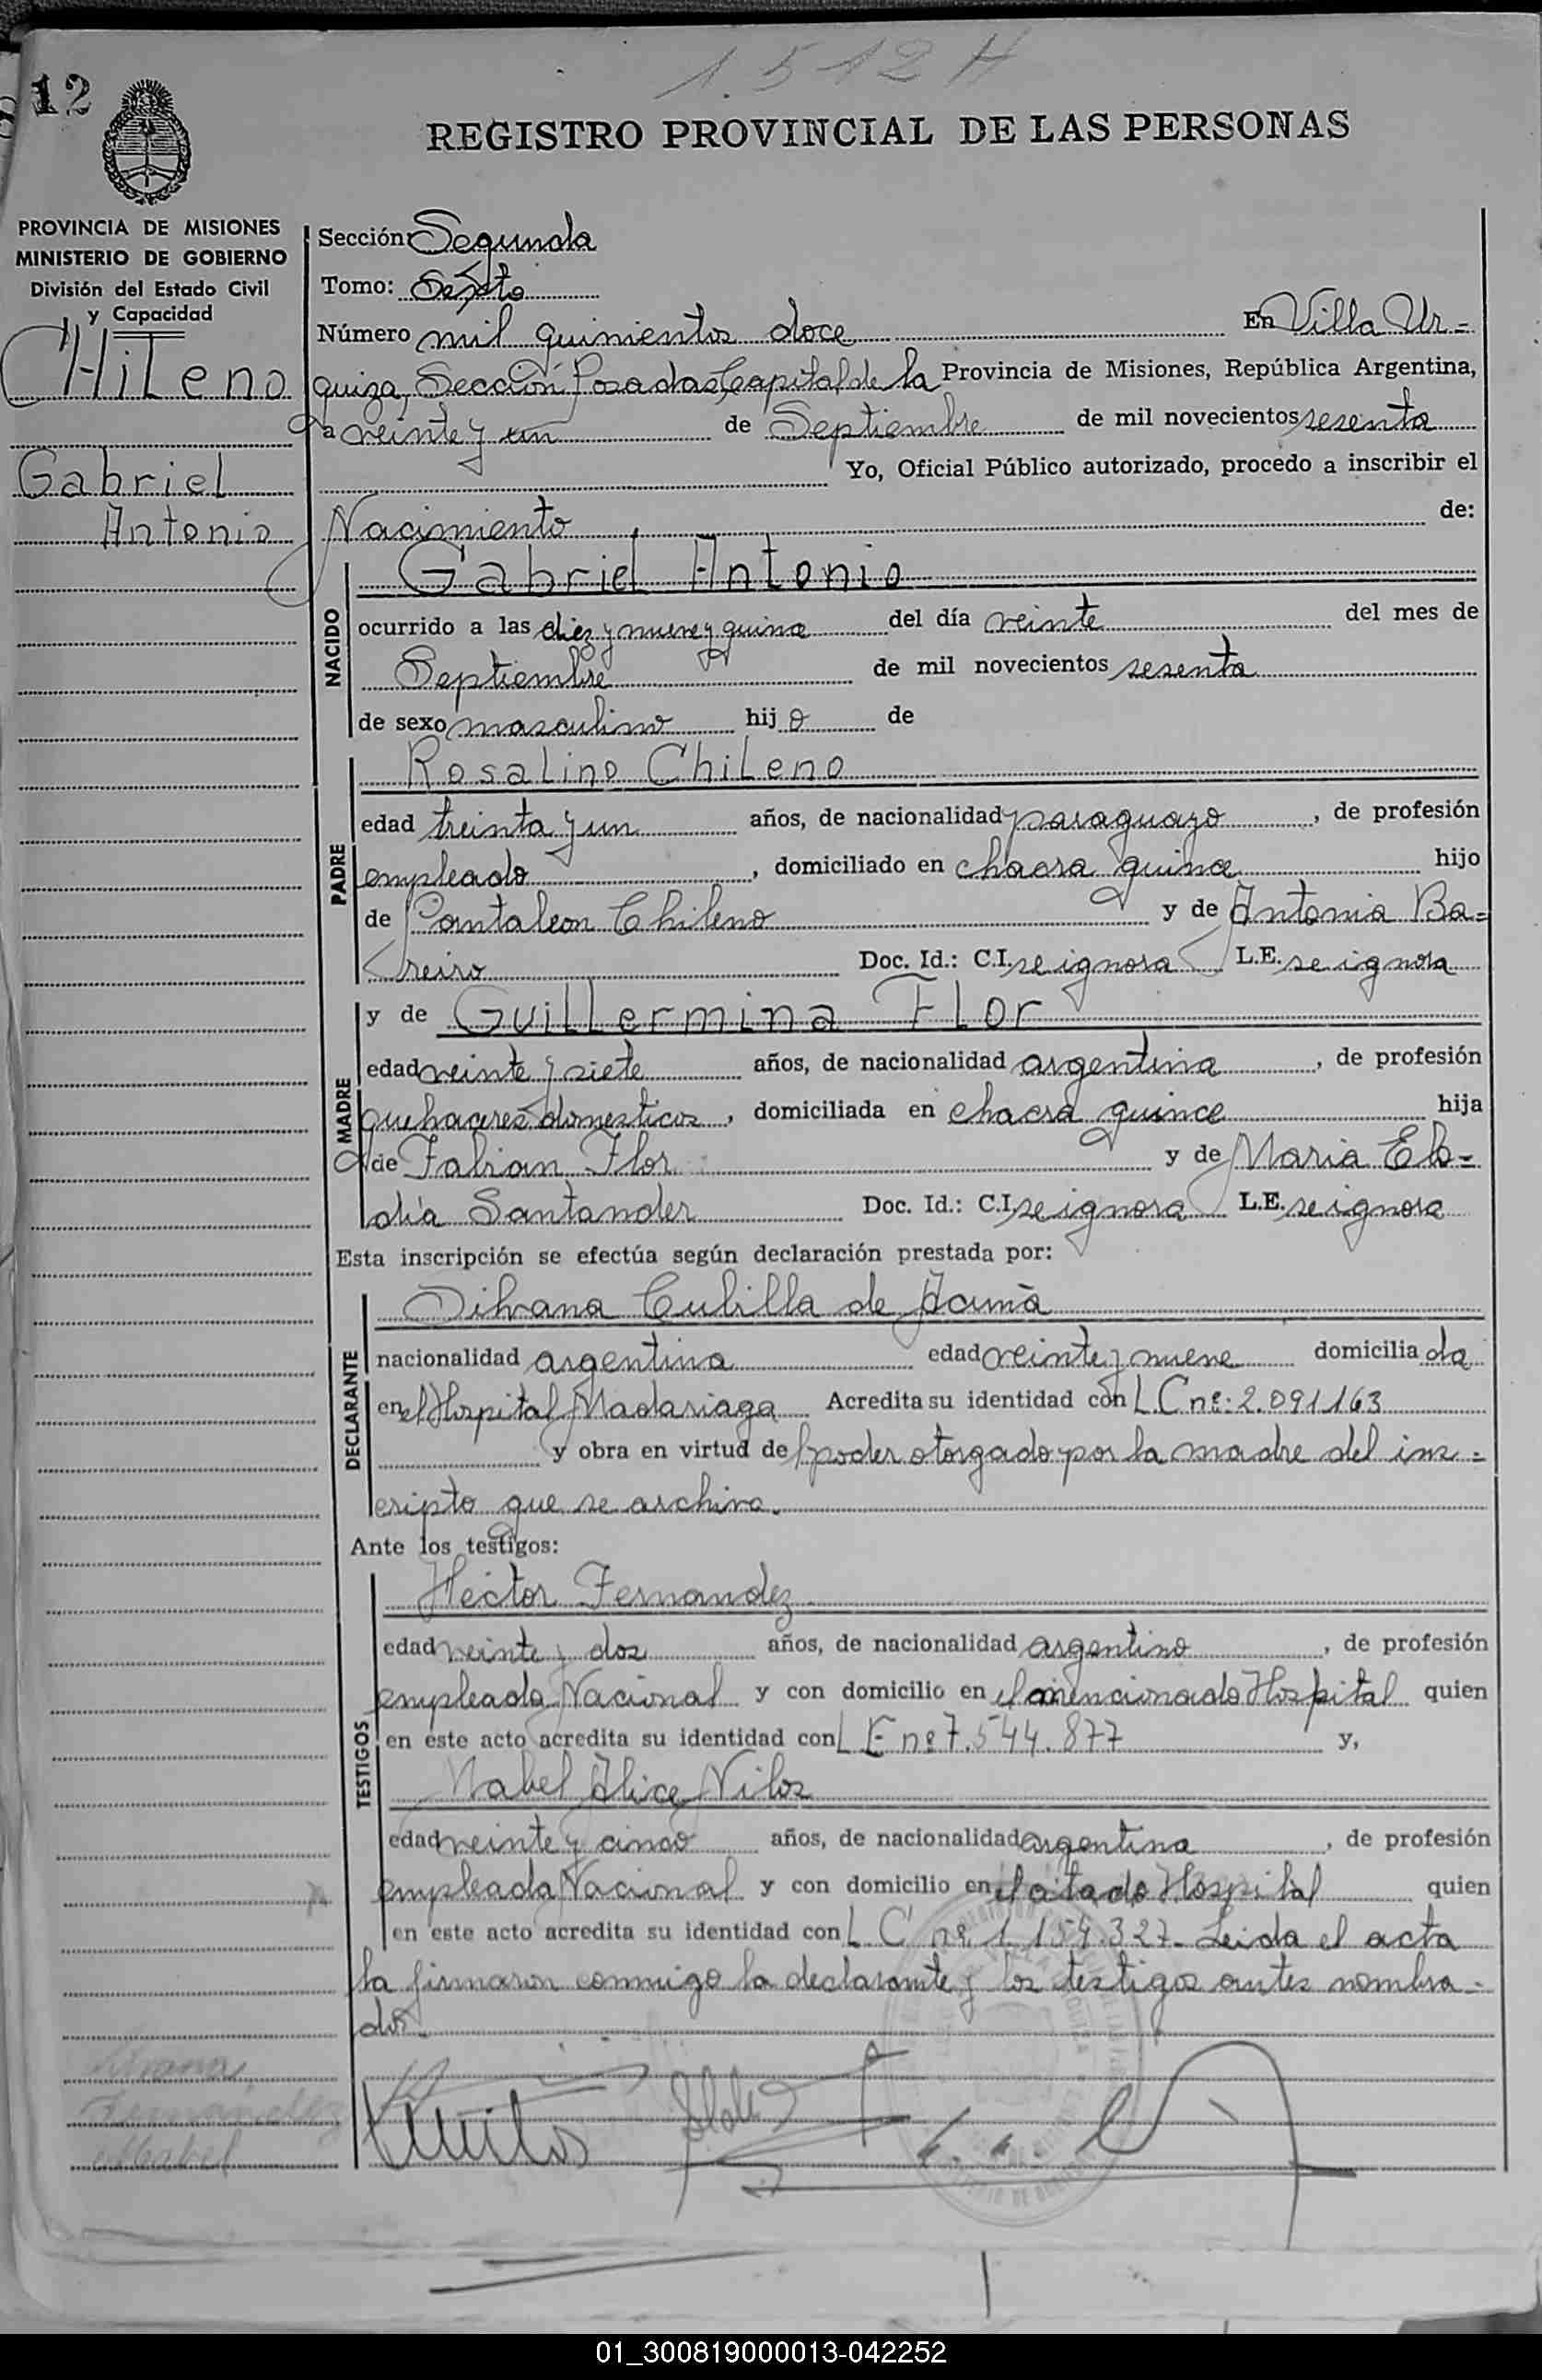 1.512 H
12
REGISTRO PROVINCIAL DE LAS PERSONAS
PROVINCIA DE MISIONES
MINISTERIO DE GOBIERNO
División del Estado Civil
y Capacidad
CHiLeno
Gabriel
Antonio
Sección: Segunda
Tomo: Sexto
Número mil quinientos doce En Villa Ur=
quiza, Sección Posadas, Capital de la Provincia de Misiones, República Argentina,
a veinte y un de Septiembre de mil novecientos sesenta
Yo, Oficial Público autorizado, procedo a inscribir el
Nacimiento de:
NACIDO
Gabriel Antonio
ocurrido a las diez y nueve y quince del día veinte del mes de
Septiembre de mil novecientos sesenta
de sexo masculino hijo de
PADRE
Rosalino Chileno
edad treinta y un años, de nacionalidad paraguayo, de profesión
empleado, domiciliado en chacra quince hijo
de Pantaleon Chileno y de Antonia Ba=
reiro Doc. Id.: C.I. se ignora L.E. se ignora
MADRE
y de Guillermina Flor
edad veinte y siete años, de nacionalidad argentina, de profesión
quehaceres domesticos, domiciliada en chacra quince hija
de Fabian Flor y de Maria Elo=
dia Santander Doc. Id.: C.I. se ignora L.E. se ignora
Esta inscripción se efectúa según declaración prestada por:
DECLARANTE
Silvana Cubilla de Acuña
nacionalidad argentina edad veinte y nueve domiciliada
en el Hospital Madariaga Acredita su identidad con L C nº: 2.091.163
y obra en virtud de poder otorgado por la madre del ins=
cripto que se archiva.
Ante los testigos:
TESTIGOS
Héctor Fernandez
edad veinte y dos años, de nacionalidad argentino, de profesión
empleada Nacional y con domicilio en el mencionado Hospital quien
en este acto acredita su identidad con L E nº 7.544.877 y,
Mabel Alice Vilos
edad veinte y cinco años, de nacionalidad argentina, de profesión
empleada Nacional y con domicilio en el citado Hospital quien
en este acto acredita su identidad con L. C nº. 1.154.327- Leida el acta
la firmaron conmigo la declarante y los testigos antes nombra=
dos.
Silvana
Fernandez
Mabel
01_300819000013-042252